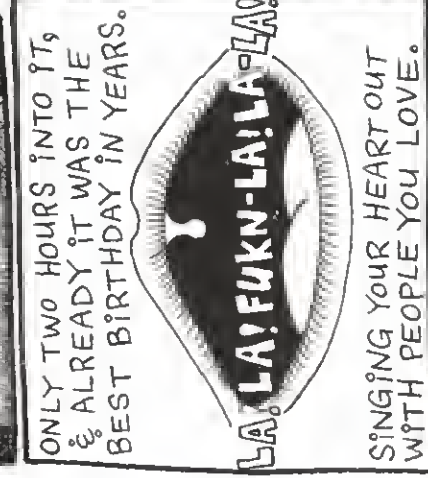 ONLY TWO HOURS INTO IT,
& ALREADY IT WAS THE
BEST BIRTHDAY IN YEARS.
LA. LA! FUKN-LA!LA-LA!
SINGING YOUR HEART OUT
WITH PEOPLE YOU LOVE.